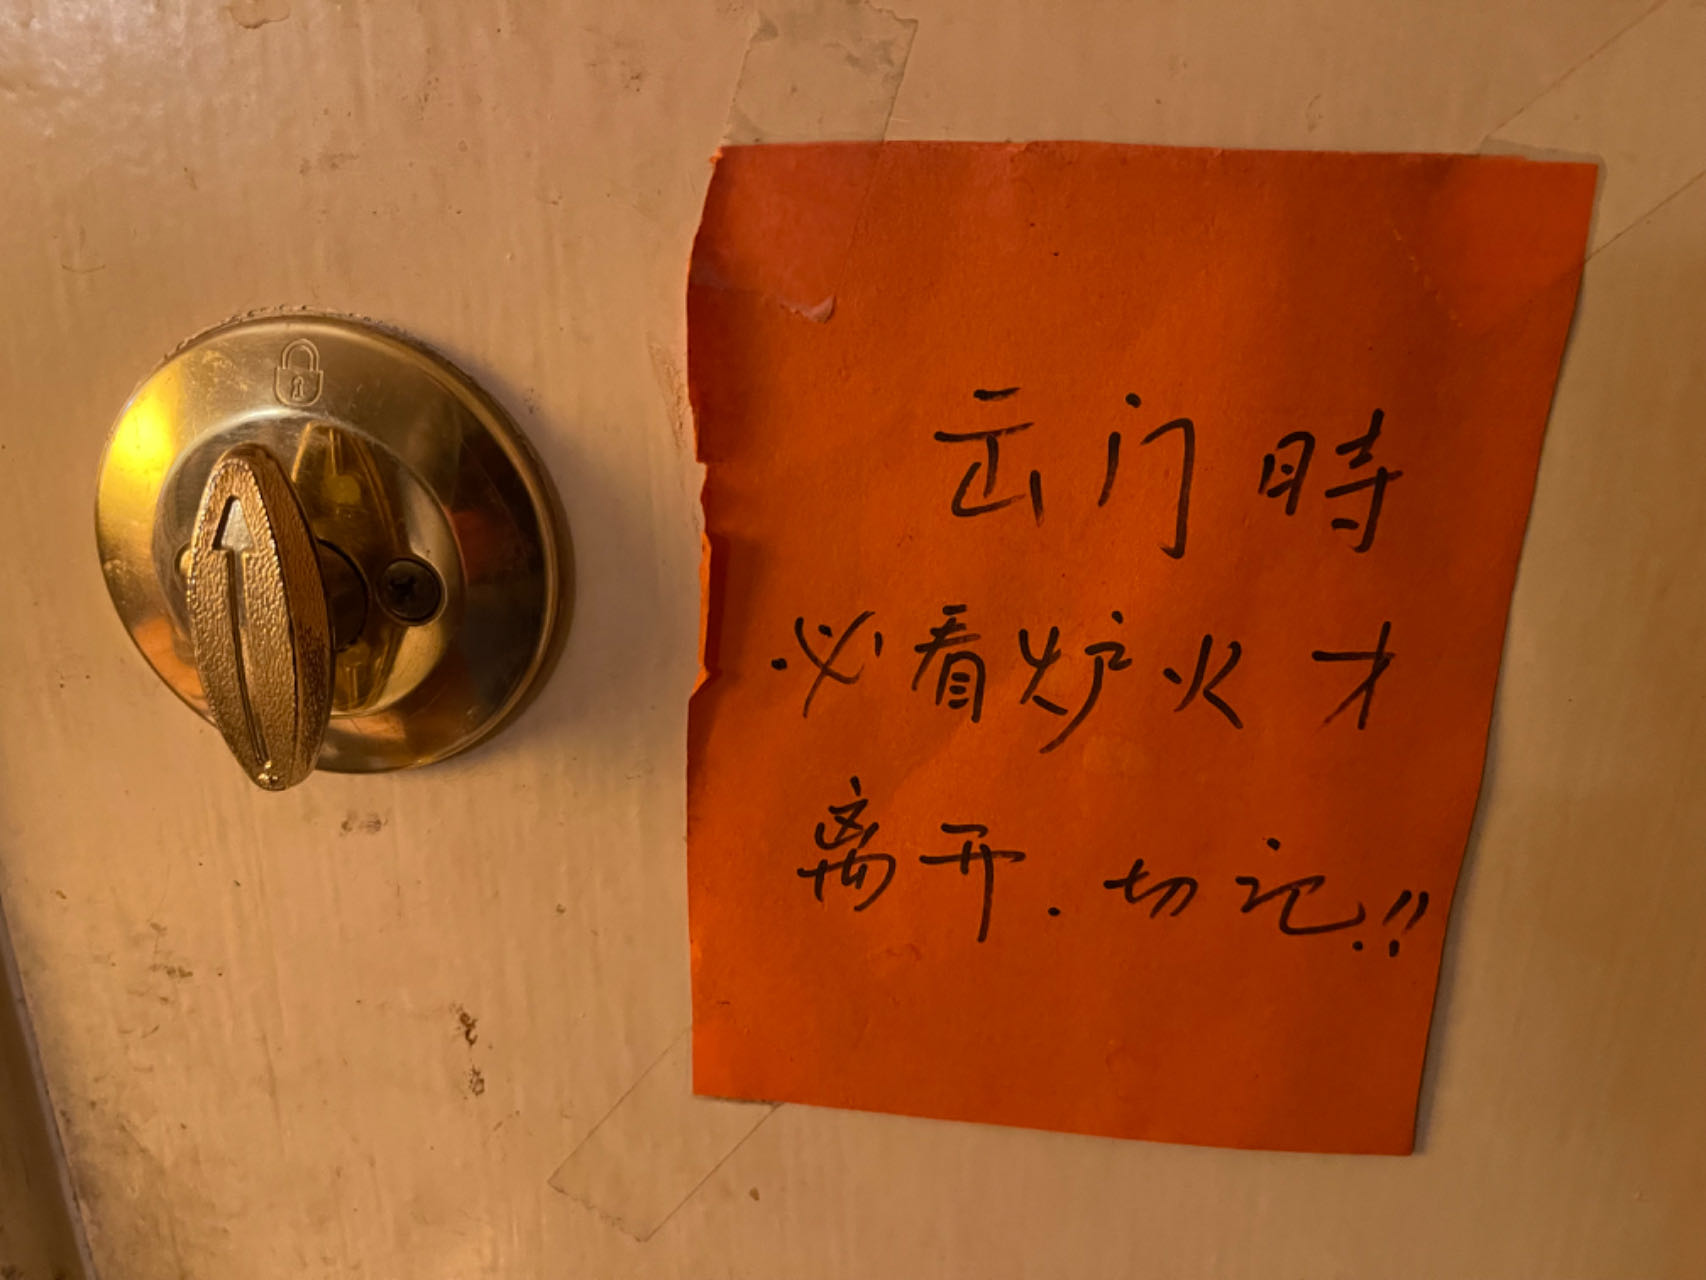 出门時
必看炉火才
离开.切记!!